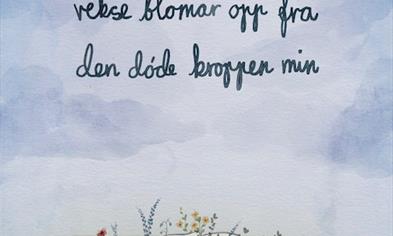 vekse blomar opp fra
den døde kroppen min